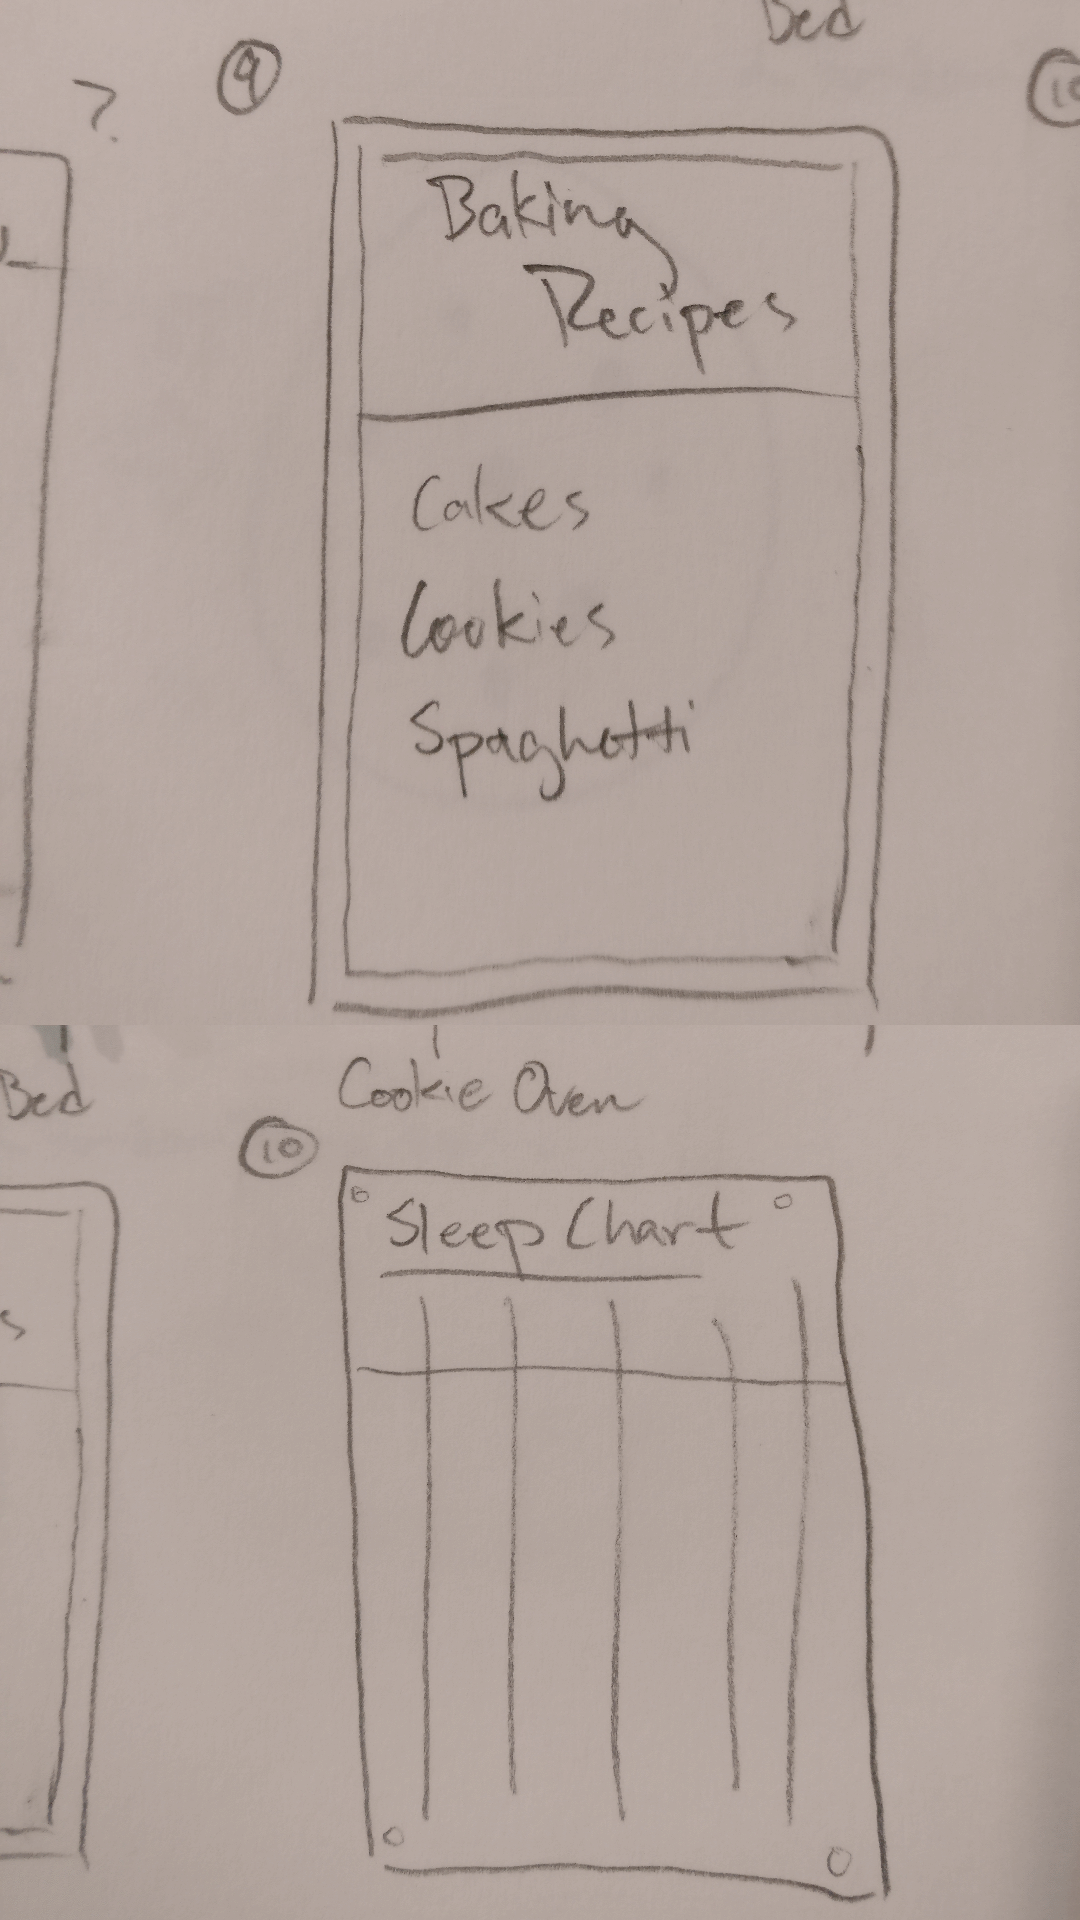 Bed
?
9
10
Baking
Recipes
Cakes
Cookies
Spaghetti
Bed
Cookie Oven
10
Sleep Chart
s